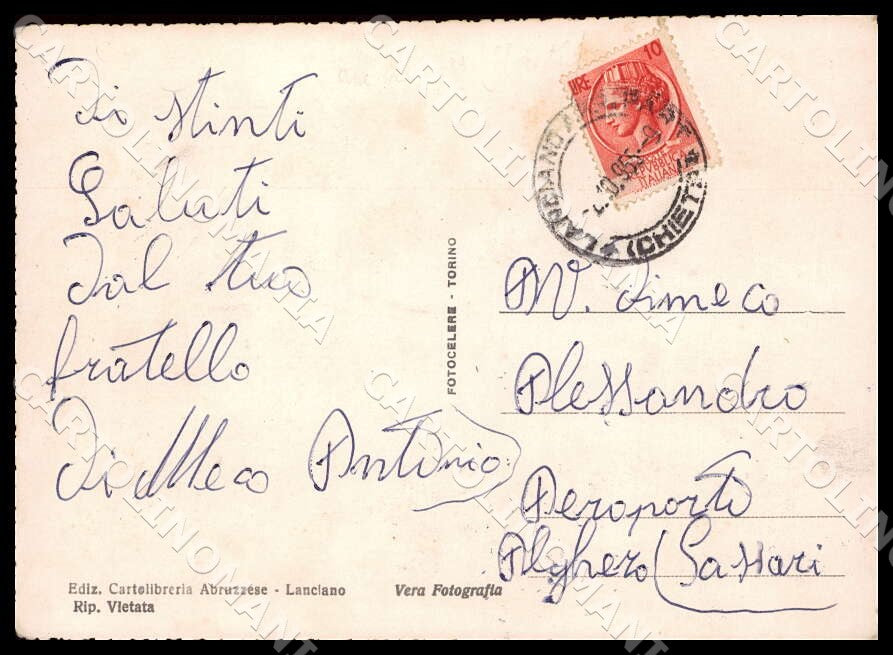 Di stinti
Saluti
Dal tuo
fratello
Di Meco Antonio
LIRE 10
REPUBBLICA
ITALIANA
LANCIANO
(CHIETI)
FOTOCELERE - TORINO
AV. Dimeco
Alessandro
Aeroporto
Alghero (Sassari
Ediz. Cartolibreria Abruzzese - Lanciano
Rip. Vietata
Vera Fotografia
CARTOLINOMANIA